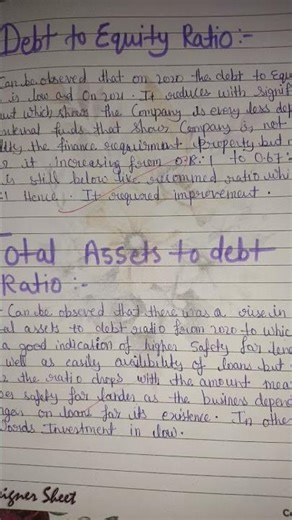 Debt to Equity Ratio :-
Can be observed that on 2020 the debt to Equ
is low and On 2021. It reduces with signifi
out which shows the Company is every less dep
external funds that shows Company is not
the finance requirement property but
it increasing from 0.28:1 to 0.67:
is still below the recommed ratio whi
:1 Hence, It required improvement.
otal Assets to debt
Ratio :-
Can be obseved that there was a rise in
al assets to debt ratio from 2020 to which
a good indication of higher Safety for lend
well as easily availibility of loans but
the ratio drops with the amount mea
safety for lander as the business depend
on loans for its existence. In othe
words Investment in low.
signer Sheet